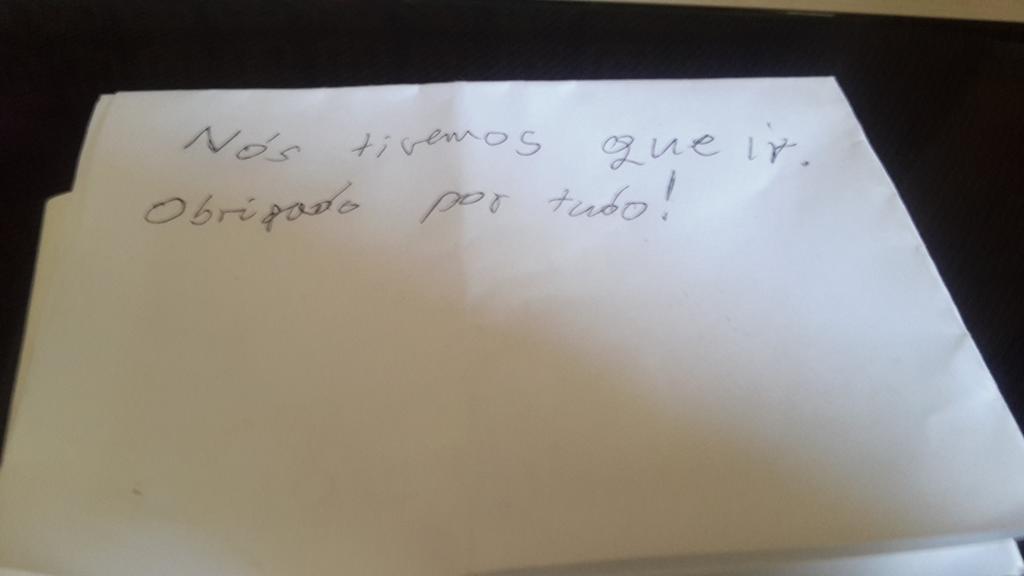 Nós tivemos que ir.
Obrigado por tudo!